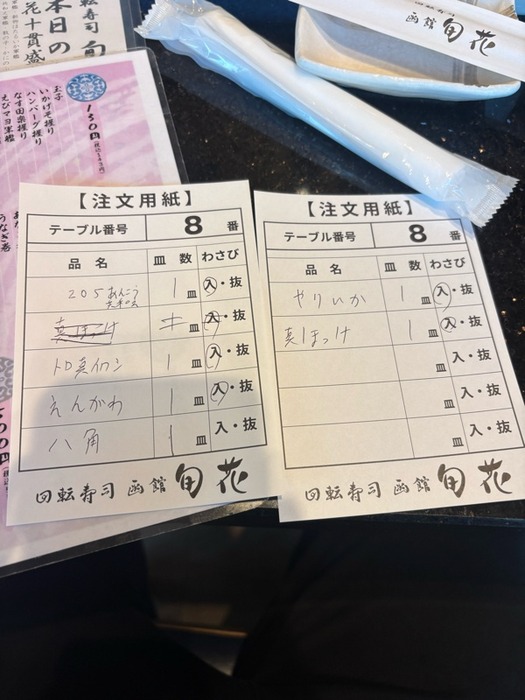 回転寿司 旬
本日の
花十貫盛
130円
玉子
いかげそ握り
ハンバーグ握り
なす田楽握り
えびマヨ軍艦
うなぎ巻
函館 旬花
【注文用紙】
テーブル番号 8 番
品名 皿数 わさび
205 あんこう 1皿 入・抜
真ほっけ 皿 入・抜
トロ真イワシ 1皿 入・抜
えんがわ 1皿 入・抜
八角 1皿 入・抜
回転寿司 函館 旬花
【注文用紙】
テーブル番号 8 番
品名 皿数 わさび
やりいか 1皿 入・抜
真ほっけ 1皿 入・抜
皿 入・抜
皿 入・抜
皿 入・抜
回転寿司 函館 旬花